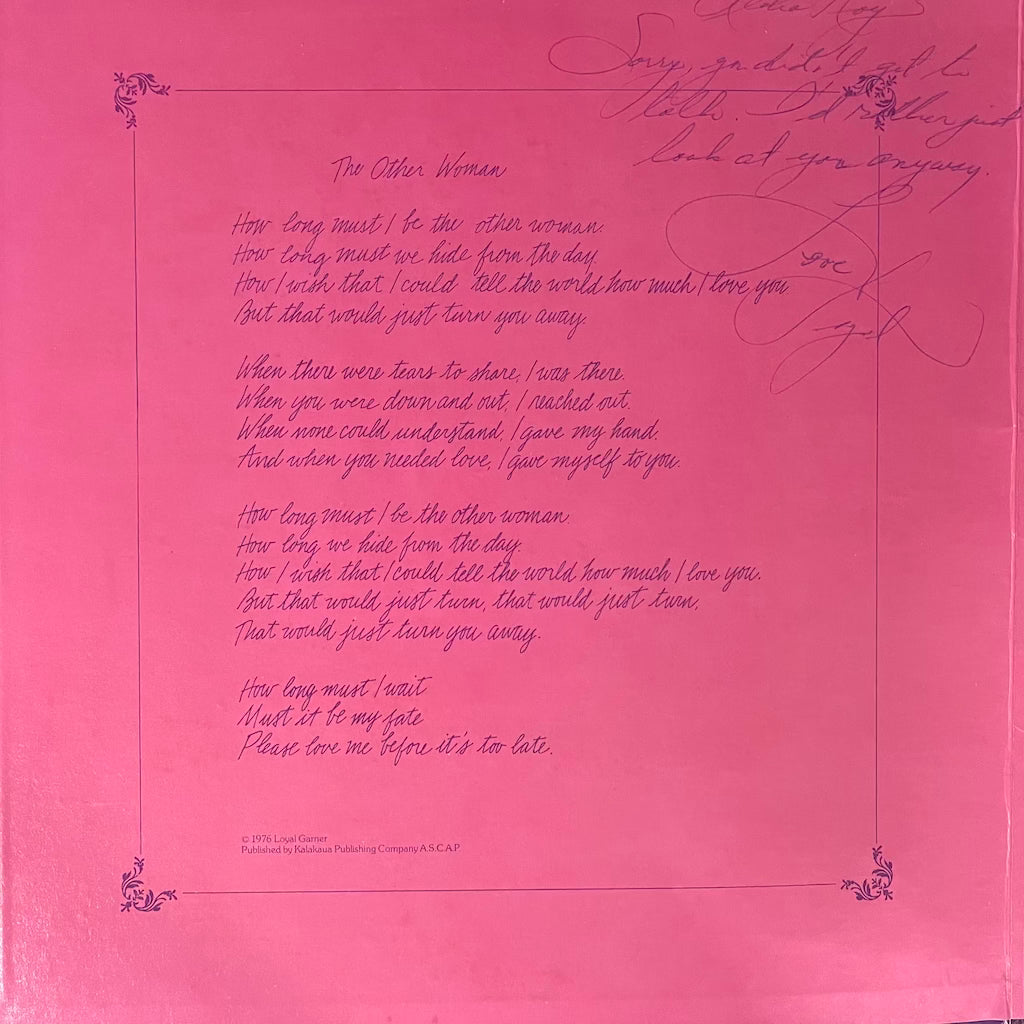 Aloha Roy
Sorry, you didn't get to
talk. I'd rather just
look at you anyway.
Love
Loyal
The Other Woman
How long must I be the other woman.
How long must we hide from the day.
How I wish that I could tell the world how much I love you
But that would just turn you away.
When there were tears to share, I was there.
When you were down and out, I reached out.
When none could understand, I gave my hand.
And when you needed love, I gave myself to you.
How long must I be the other woman.
How long we hide from the day.
How I wish that I could tell the world how much I love you.
But that would just turn, that would just turn,
That would just turn you away.
How long must I wait
Must it be my fate
Please love me before it's too late.
© 1976 Loyal Garner
Published by Kalakaua Publishing Company A.S.C.A.P.